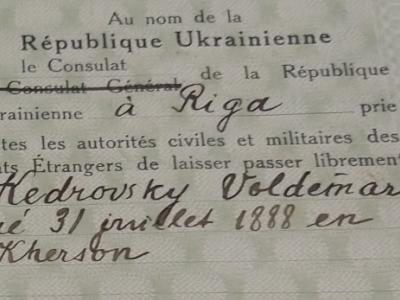 Au nom de la
République Ukrainienne
le Consulat
Consulat Général de la République
rainienne à Riga prie
tes les autorités civiles et militaires des
ts Étrangers de laisser passer librement
Kedrovsky Voldemar
né 31 juillet 1888 en
Kherson